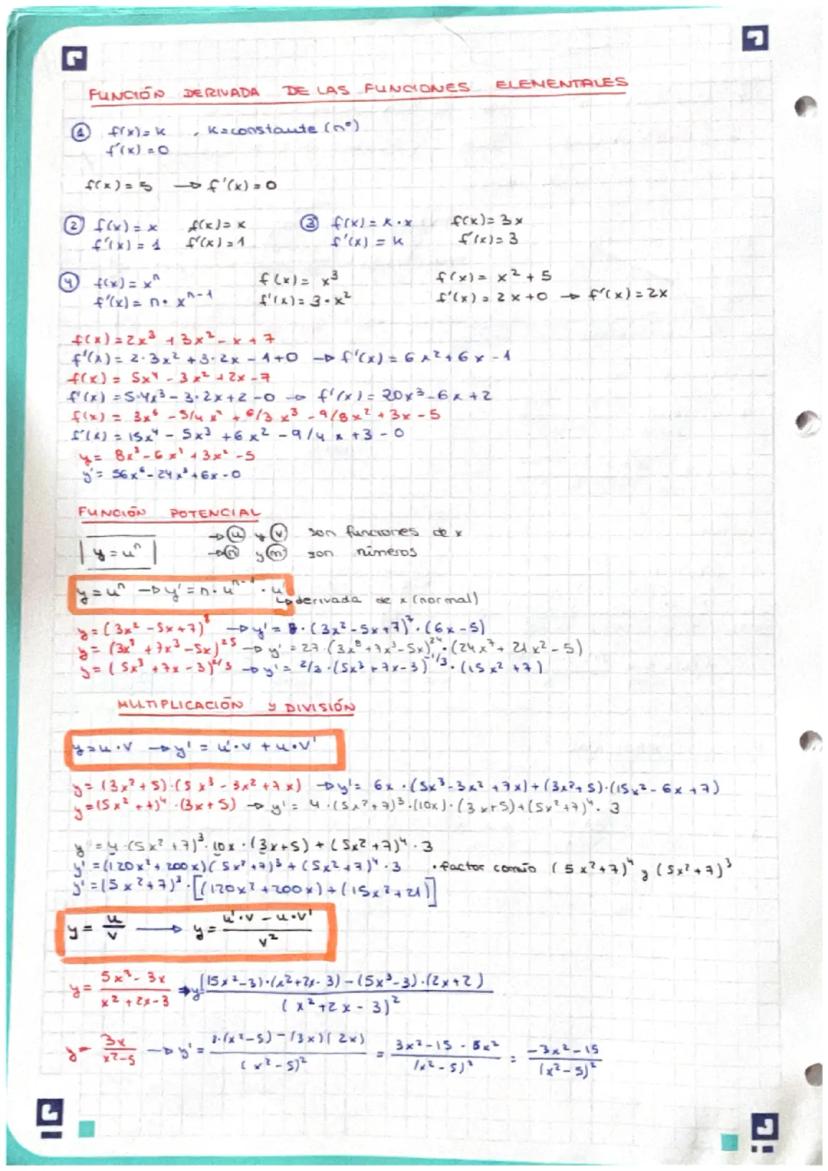 FUNCIÓN DERIVADA DE LAS FUNCIONES ELEMENTALES
① f(x) = k , k = constante (nº)
f'(x) = 0
f(x) = 5 → f'(x) = 0
② f(x) = x f(x) = x ③ f(x) = k·x f(x) = 3x
f'(x) = 1 f'(x) = 1 f'(x) = k f'(x) = 3
④ f(x) = xⁿ f(x) = x³ f(x) = x² + 5
f'(x) = n · xⁿ⁻¹ f'(x) = 3·x² f'(x) = 2x+0 → f'(x) = 2x
f(x) = 2x³ + 3x² - x + 7
f'(x) = 2·3x² + 3·2x - 1+0 → f'(x) = 6x² + 6x - 1
f(x) = 5x⁴ - 3x² + 2x - 7
f'(x) = 5·4x³ - 3·2x + 2 - 0 → f'(x) = 20x³ - 6x + 2
f(x) = - 5/4 + 6/3 x³ - 9/8x² + 3x - 5
f'(x) = 15x⁴ - 5x³ + 6x² - 9/4 x + 3 - 0
y = + 3x² - 5
y' = 56x⁶ - 24x³ + 6x - 0
FUNCIÓN POTENCIAL
→ⓤ y ⓥ son funciones de x
y = uⁿ →ⓝ y ⓜ son números
y = uⁿ → y' = n · uⁿ⁻¹ · u'
↳ derivada de x (normal)
y = (3x² - 5x + 7)⁸ → y' = 8 · (3x² - 5x + 7)⁷ · (6x - 5)
y = (3x⁸ + 7x³ - 5x)²⁵ → y' = 27 · (3x⁸ + 7x³ - 5x)²⁴ · (24x⁷ + 21x² - 5)
y = (5x³ + 7x - 3)²ᐟ³ → y' = 2/3 · (5x³ + 7x - 3)⁻¹ᐟ³ · (15x² + 7)
MULTIPLICACIÓN Y DIVISIÓN
y = u·v → y' = u'·v + u·v'
y = (3x² + 5)·(5x³ - 3x² + 7x) → y' = 6x · (5x³ - 3x² + 7x) + (3x² + 5)·(15x² - 6x + 7)
y = (5x² + 7)⁴ · (3x + 5) → y' = 4·(5x² + 7)³·(10x)·(3x + 5) + (5x² + 7)⁴ · 3
y' = 4·(5x² + 7)³·10x·(3x + 5) + (5x² + 7)⁴ · 3
y' = (120x² + 200x)(5x² + 7)³ + (5x² + 7)⁴ · 3 · factor común (5x² + 7)⁴ y (5x² + 7)³
y' = (5x² + 7)³ · [(120x² + 200x) + (15x² + 21)]
y = u/v → y = (u'·v - u·v')/v²
y = (5x³ - 3x)/(x² + 2x - 3) → y' = ((15x² - 3)·(x² + 2x - 3) - (5x³ - 3)·(2x + 2))/(x² + 2x - 3)²
y = 3x/(x² - 5) → y' = (·(x² - 5) - (3x)(2x))/(x² - 5)² = (3x² - 15 - x²)/(x² - 5)² = (-3x² - 15)/(x² - 5)²